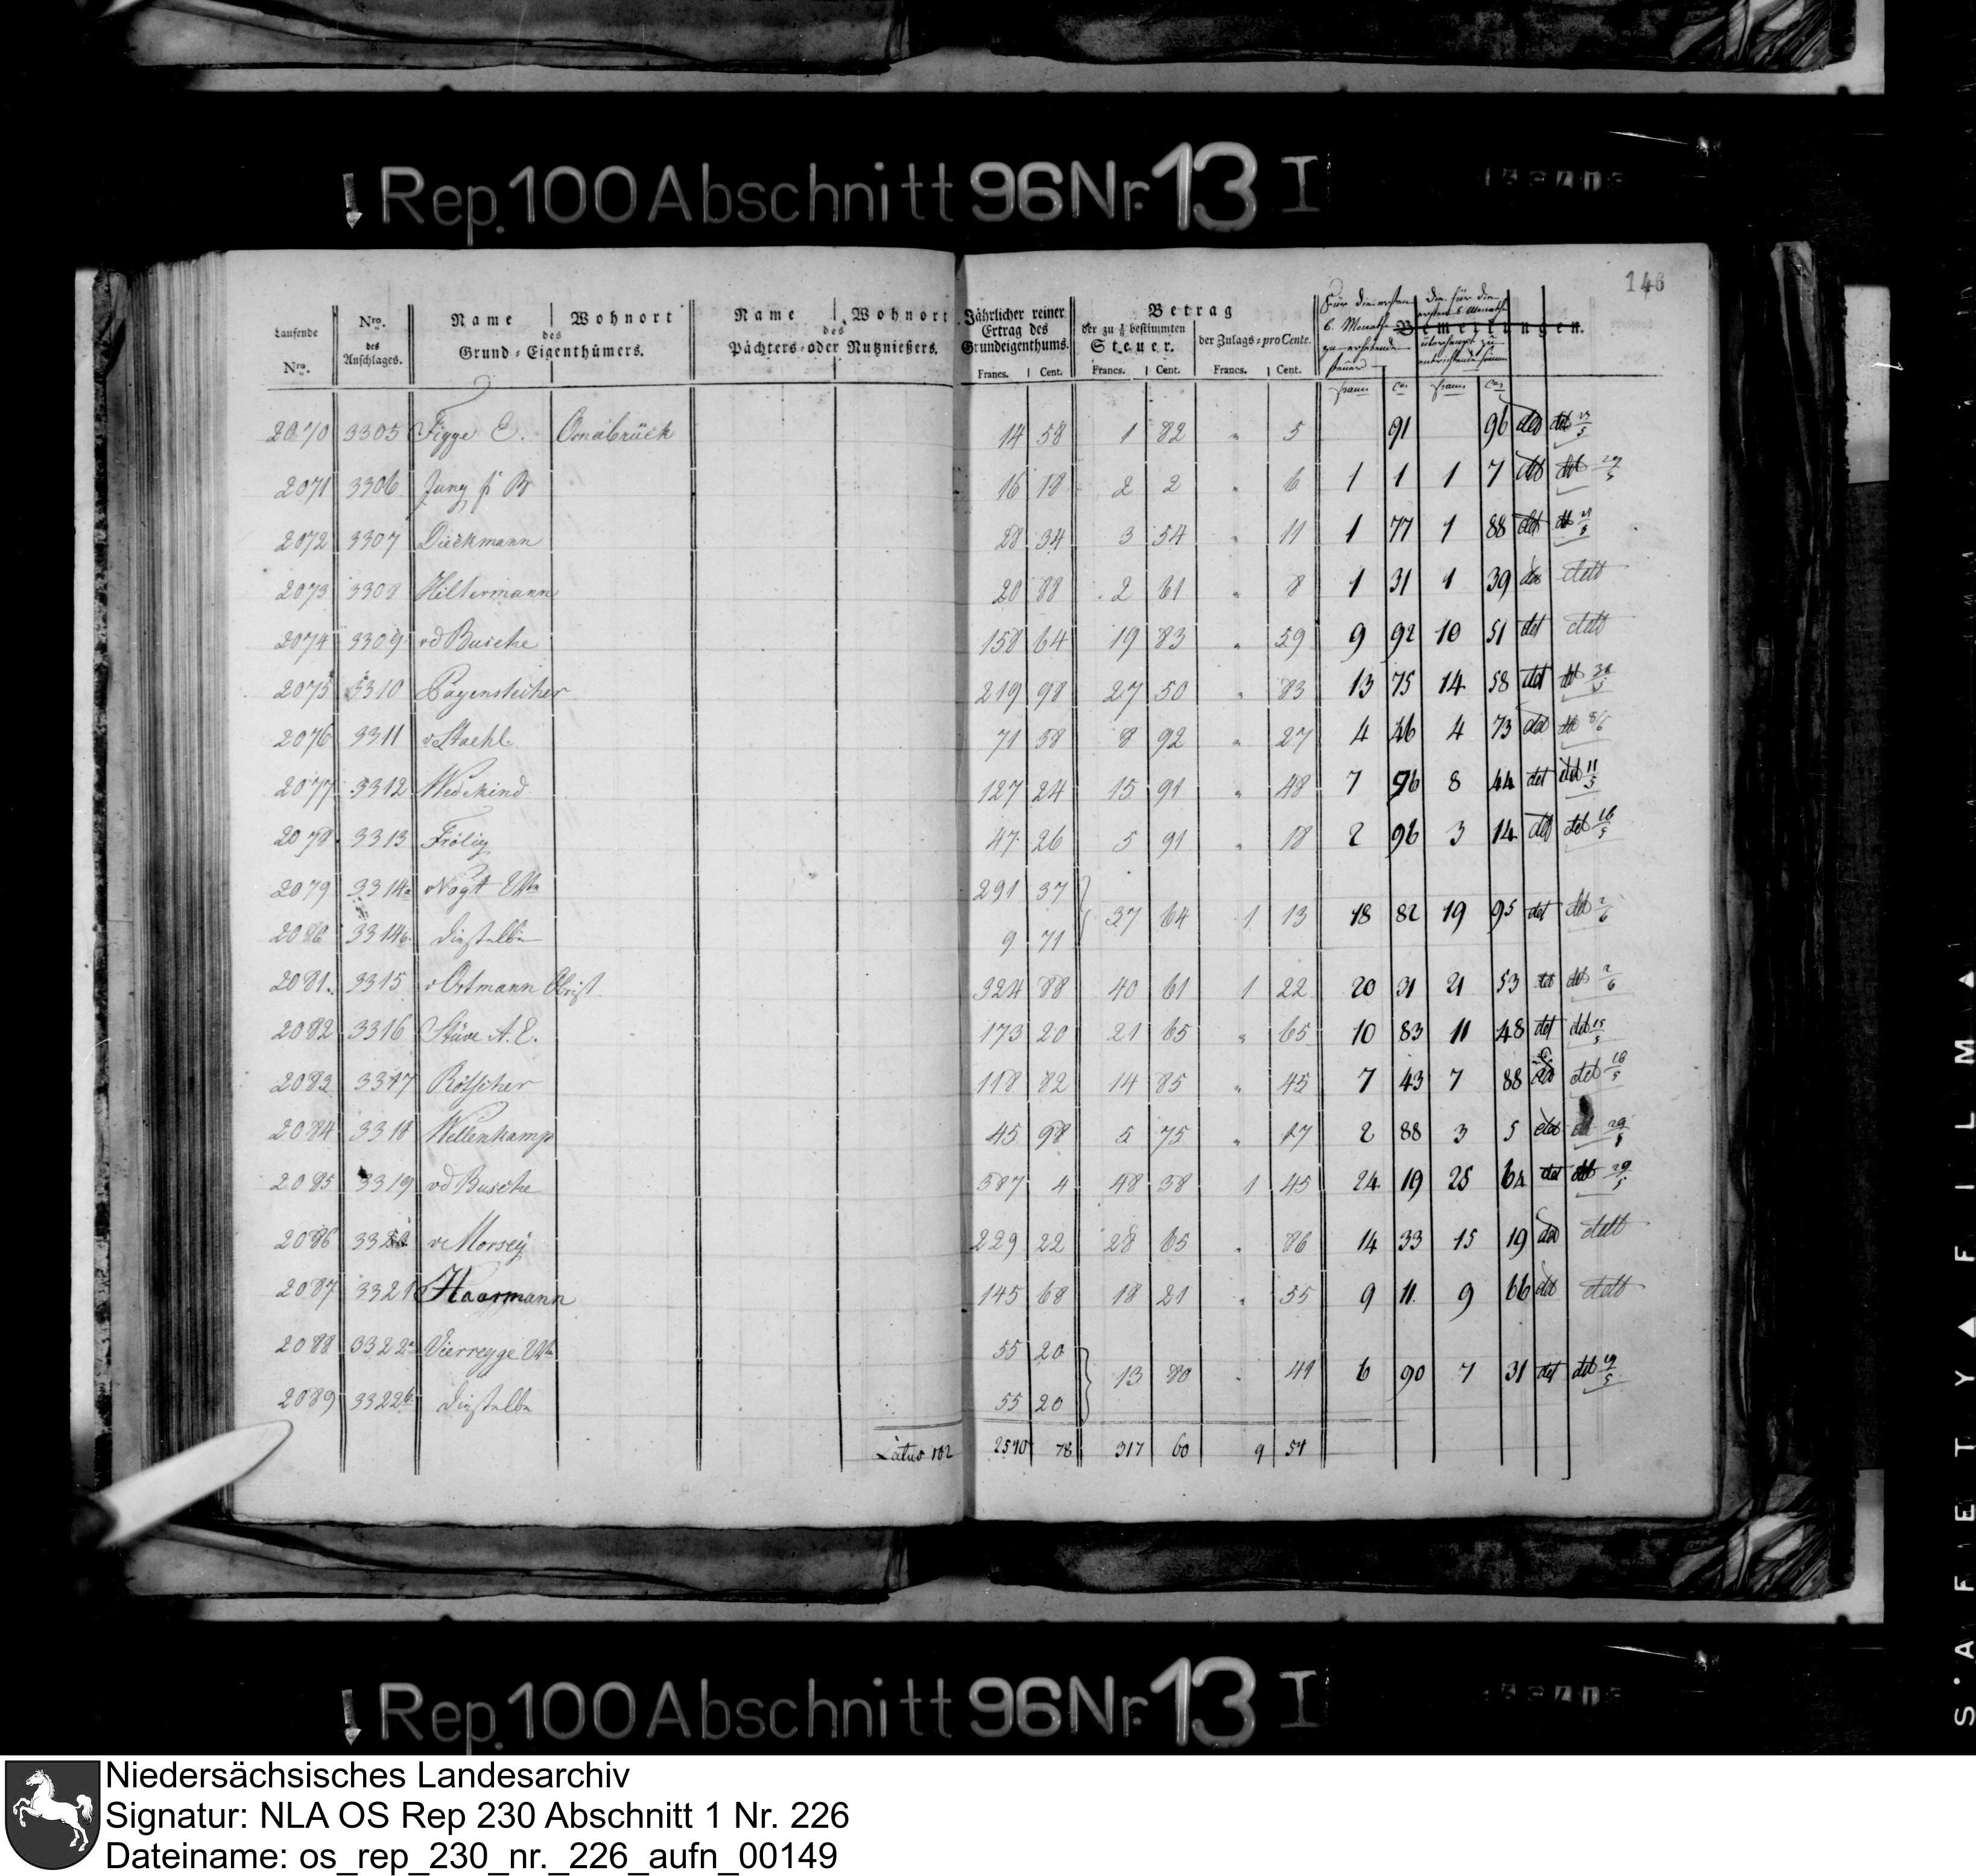 Rep. 100 Abschnitt 96 Nr. 13 I
146
Laufende Nro.
Nro. des Anschlages.
Name Wohnort
des
Grund-Eigenthümers.
Name Wohnort
des
Pächters oder Nutznießers.
Jährlicher reiner Ertrag des Grundeigenthums.
Francs. Cent.
Betrag
der zu 1/8 bestimmten Steuer.
Francs. Cent.
der Zulags-proCente.
Francs. Cent.
Für die ersten 6. Monathe zu erhebende Steuer
Bemerkungen.
2070 3305 Figge E. Osnabrück 14 58 1 82 " 5 91 96 det det
2071 3306 Jung 16 18 2 2 " 6 1 1 1 7 det det
2072 3307 Dieckmann 28 34 3 54 " 11 1 77 1 88 det det
2073 3308 Hiltermann 20 88 2 61 " 8 1 31 1 39 det dett
2074 3309 vd Busche 158 64 19 83 " 59 9 92 10 51 det dett
2075 3310 Pagenstecher 219 98 27 50 " 83 13 75 14 58 det det
2076 3311 v Staehl 71 38 8 92 " 27 4 46 4 73 det det 8/6
2077 3312 Wedekind 127 24 15 91 " 48 7 96 8 44 det det 11/5
2078 3313 Frölig 47 26 5 91 " 18 2 96 3 14 det det 16/5
2079 3314a v Vogt Wwe 291 37
37 64 1 13 18 82 19 95 det det 2/6
2080 3314b dieselbe 9 71
2081. 3315 v Ortmann Obrist 324 88 40 61 1 22 20 31 21 53 det det 2/6
2082 3316 Stüve A. E. 173 20 21 65 " 65 10 83 11 48 det det 15/5
2083 3317 Rötscher 118 82 14 85 " 45 7 43 7 88 det det 16/5
2084 3318 Wellenkamp 45 98 5 75 " 17 2 88 3 5 det det 29/5
2085 3319 vd Busche 387 4 48 38 1 45 24 19 25 64 det det 29/5
2086 3320 v Morsey 229 22 28 65 " 86 14 33 15 19 det dett
2087 3321 Haarmann 145 68 18 21 " 55 9 11 9 66 det dett
2088 3322a Vierregge Wwe 55 20
13 80 " 41 6 90 7 31 det det 19/5
2089 3322b dieselbe 55 20
Latus 102 2540 78 317 60 9 51
Rep. 100 Abschnitt 96 Nr. 13 I
SAFETY FILM
Niedersächsisches Landesarchiv
Signatur: NLA OS Rep 230 Abschnitt 1 Nr. 226
Dateiname: os_rep_230_nr._226_aufn_00149